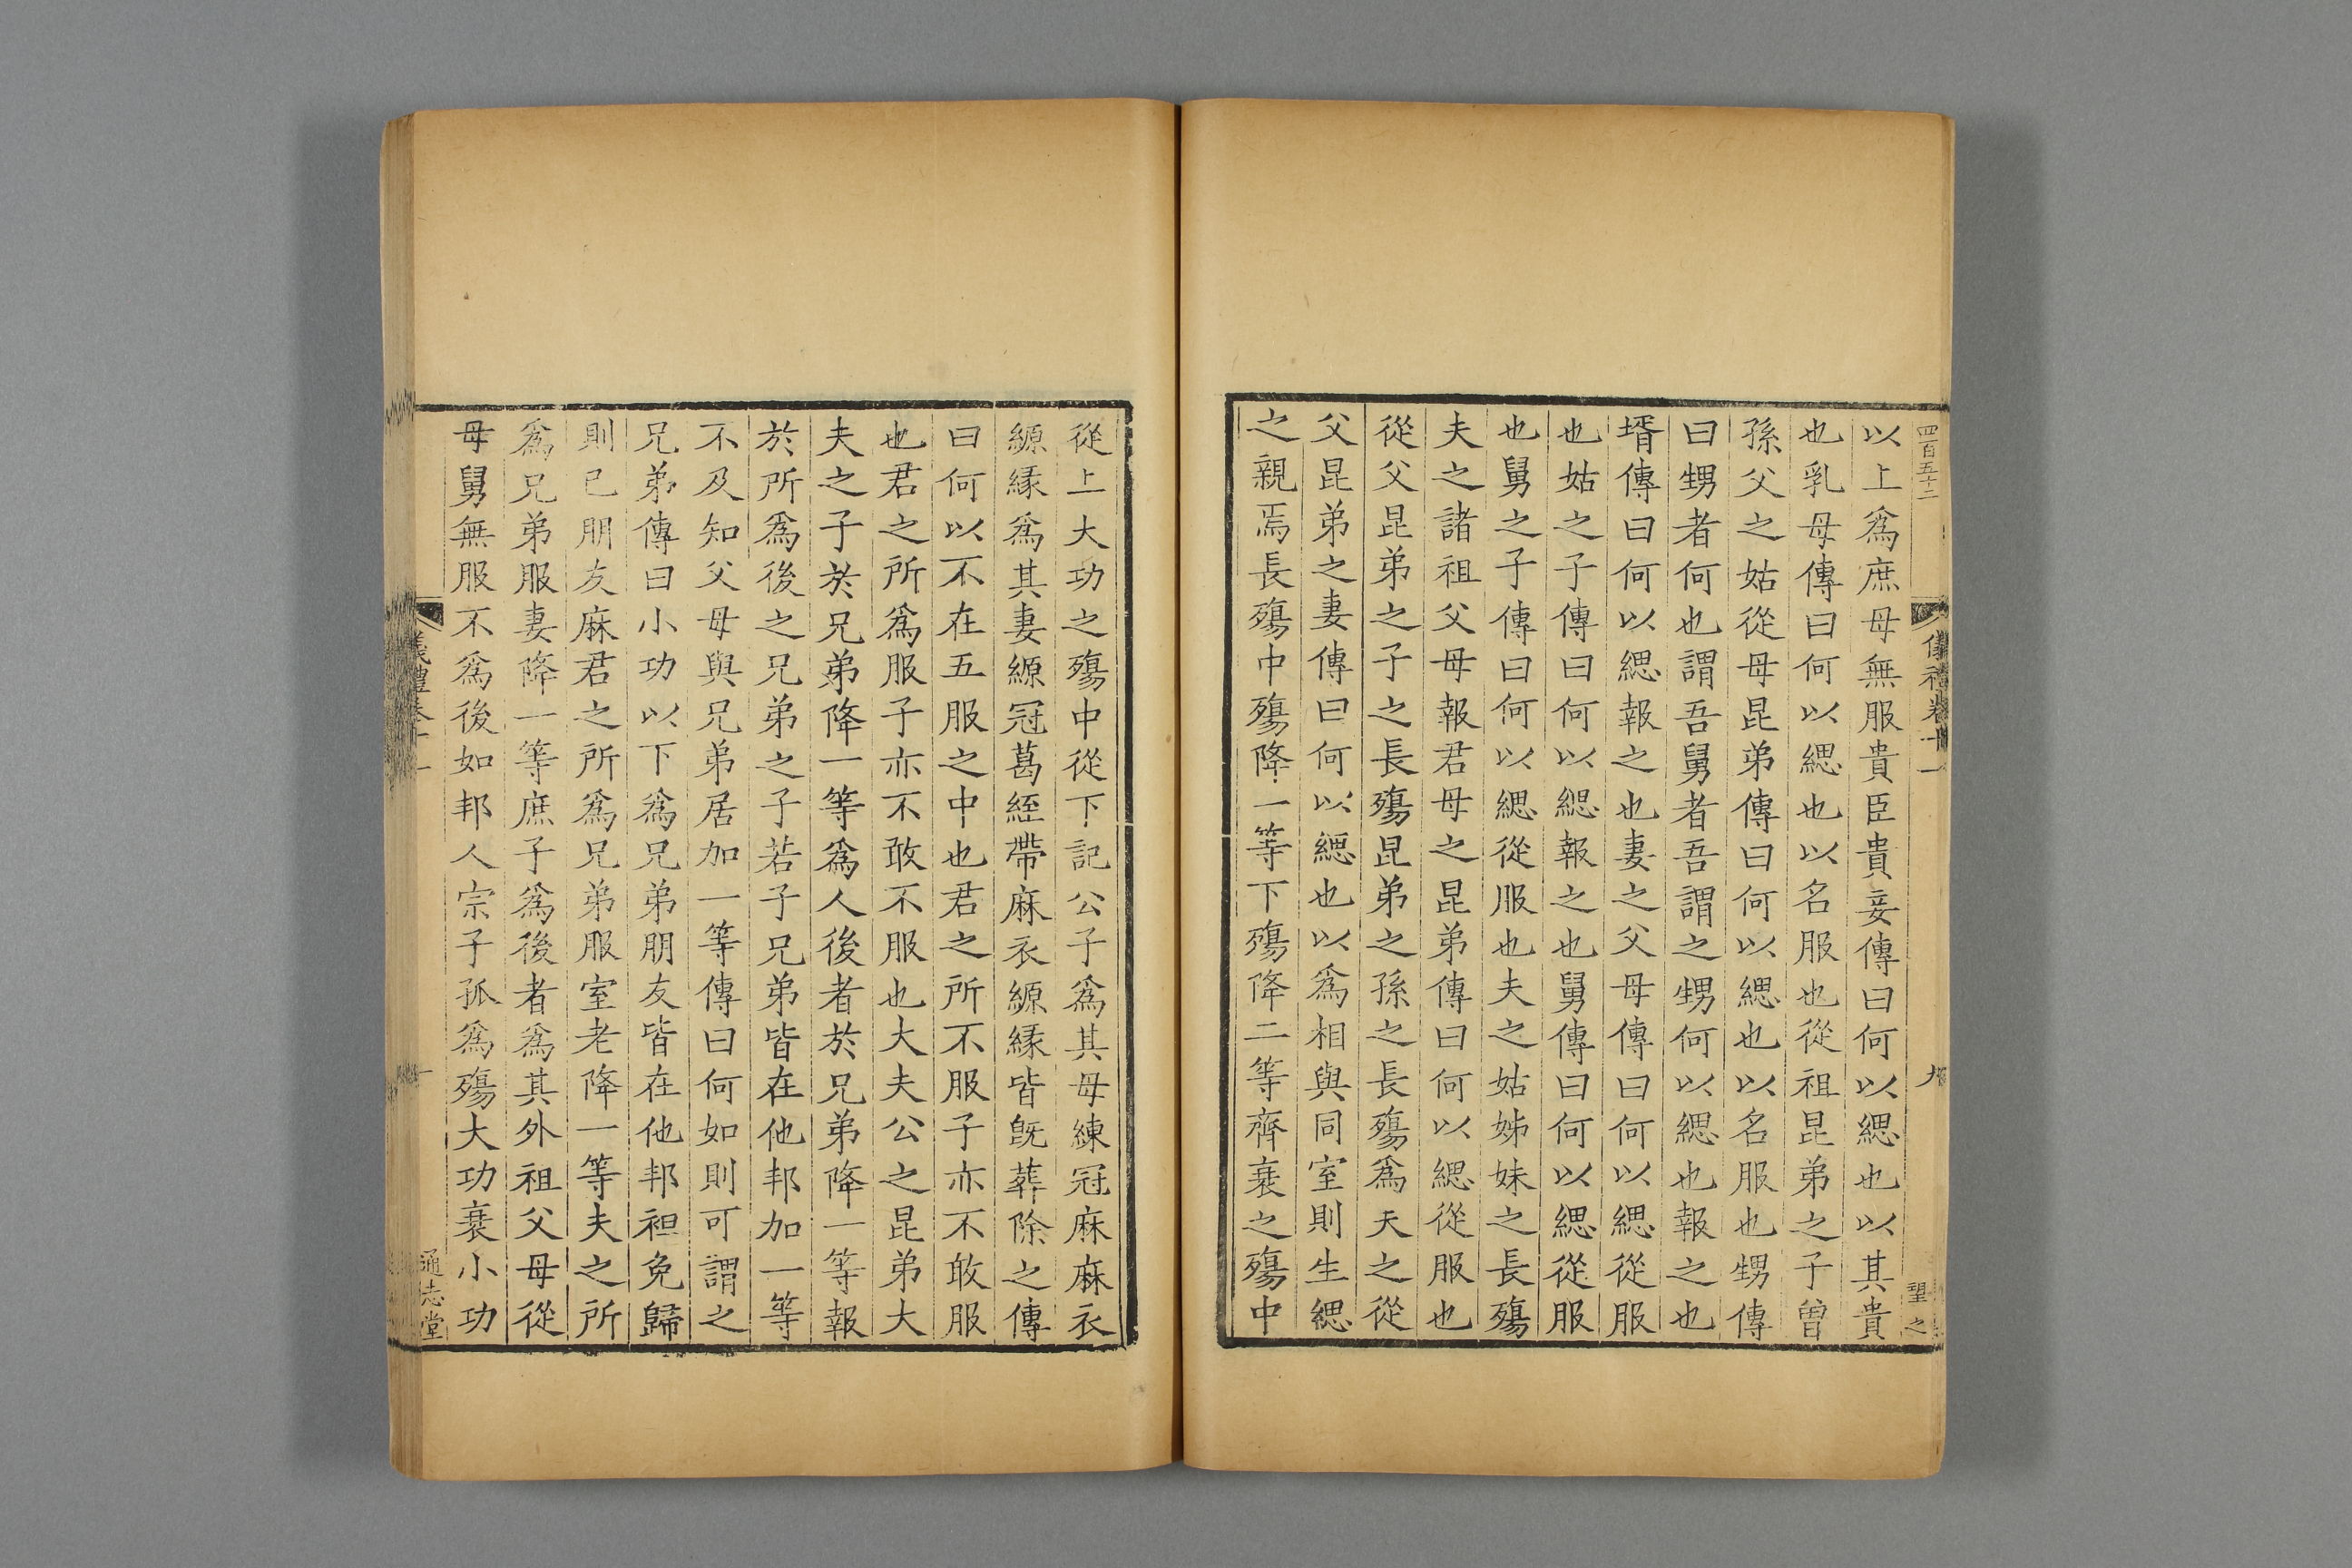 四百五十二
儀禮卷十一
九
望之
以上爲庶母無服貴臣貴妾傳曰何以緦也以其貴
也乳母傳曰何以緦也以名服也從祖昆弟之子曾
孫父之姑從母昆弟傳曰何以緦也以名服也甥傳
曰甥者何也謂吾舅者吾謂之甥何以緦也報之也
壻傳曰何以緦報之也妻之父母傳曰何以緦從服
也姑之子傳曰何以緦報之也舅傳曰何以緦從服
也舅之子傳曰何以緦從服也夫之姑姊妹之長殤
夫之諸祖父母報君母之昆弟傳曰何以緦從服也
從父昆弟之子之長殤昆弟之孫之長殤爲夫之從
父昆弟之妻傳曰何以緦也以爲相與同室則生緦
之親焉長殤中殤降一等下殤降二等齊衰之殤中
從上大功之殤中從下記公子爲其母練冠麻麻衣
縓緣爲其妻縓冠葛絰帶麻衣縓緣皆旣葬除之傳
曰何以不在五服之中也君之所不服子亦不敢服
也君之所爲服子亦不敢不服也大夫公之昆弟大
夫之子於兄弟降一等爲人後者於兄弟降一等報
於所爲後之兄弟之子若子兄弟皆在他邦加一等
不及知父母與兄弟居加一等傳曰何如則可謂之
兄弟傳曰小功以下爲兄弟朋友皆在他邦袒免歸
則已朋友麻君之所爲兄弟服室老降一等夫之所
爲兄弟服妻降一等庶子爲後者爲其外祖父母從
母舅無服不爲後如邦人宗子孤爲殤大功衰小功
儀禮卷十一
通志堂